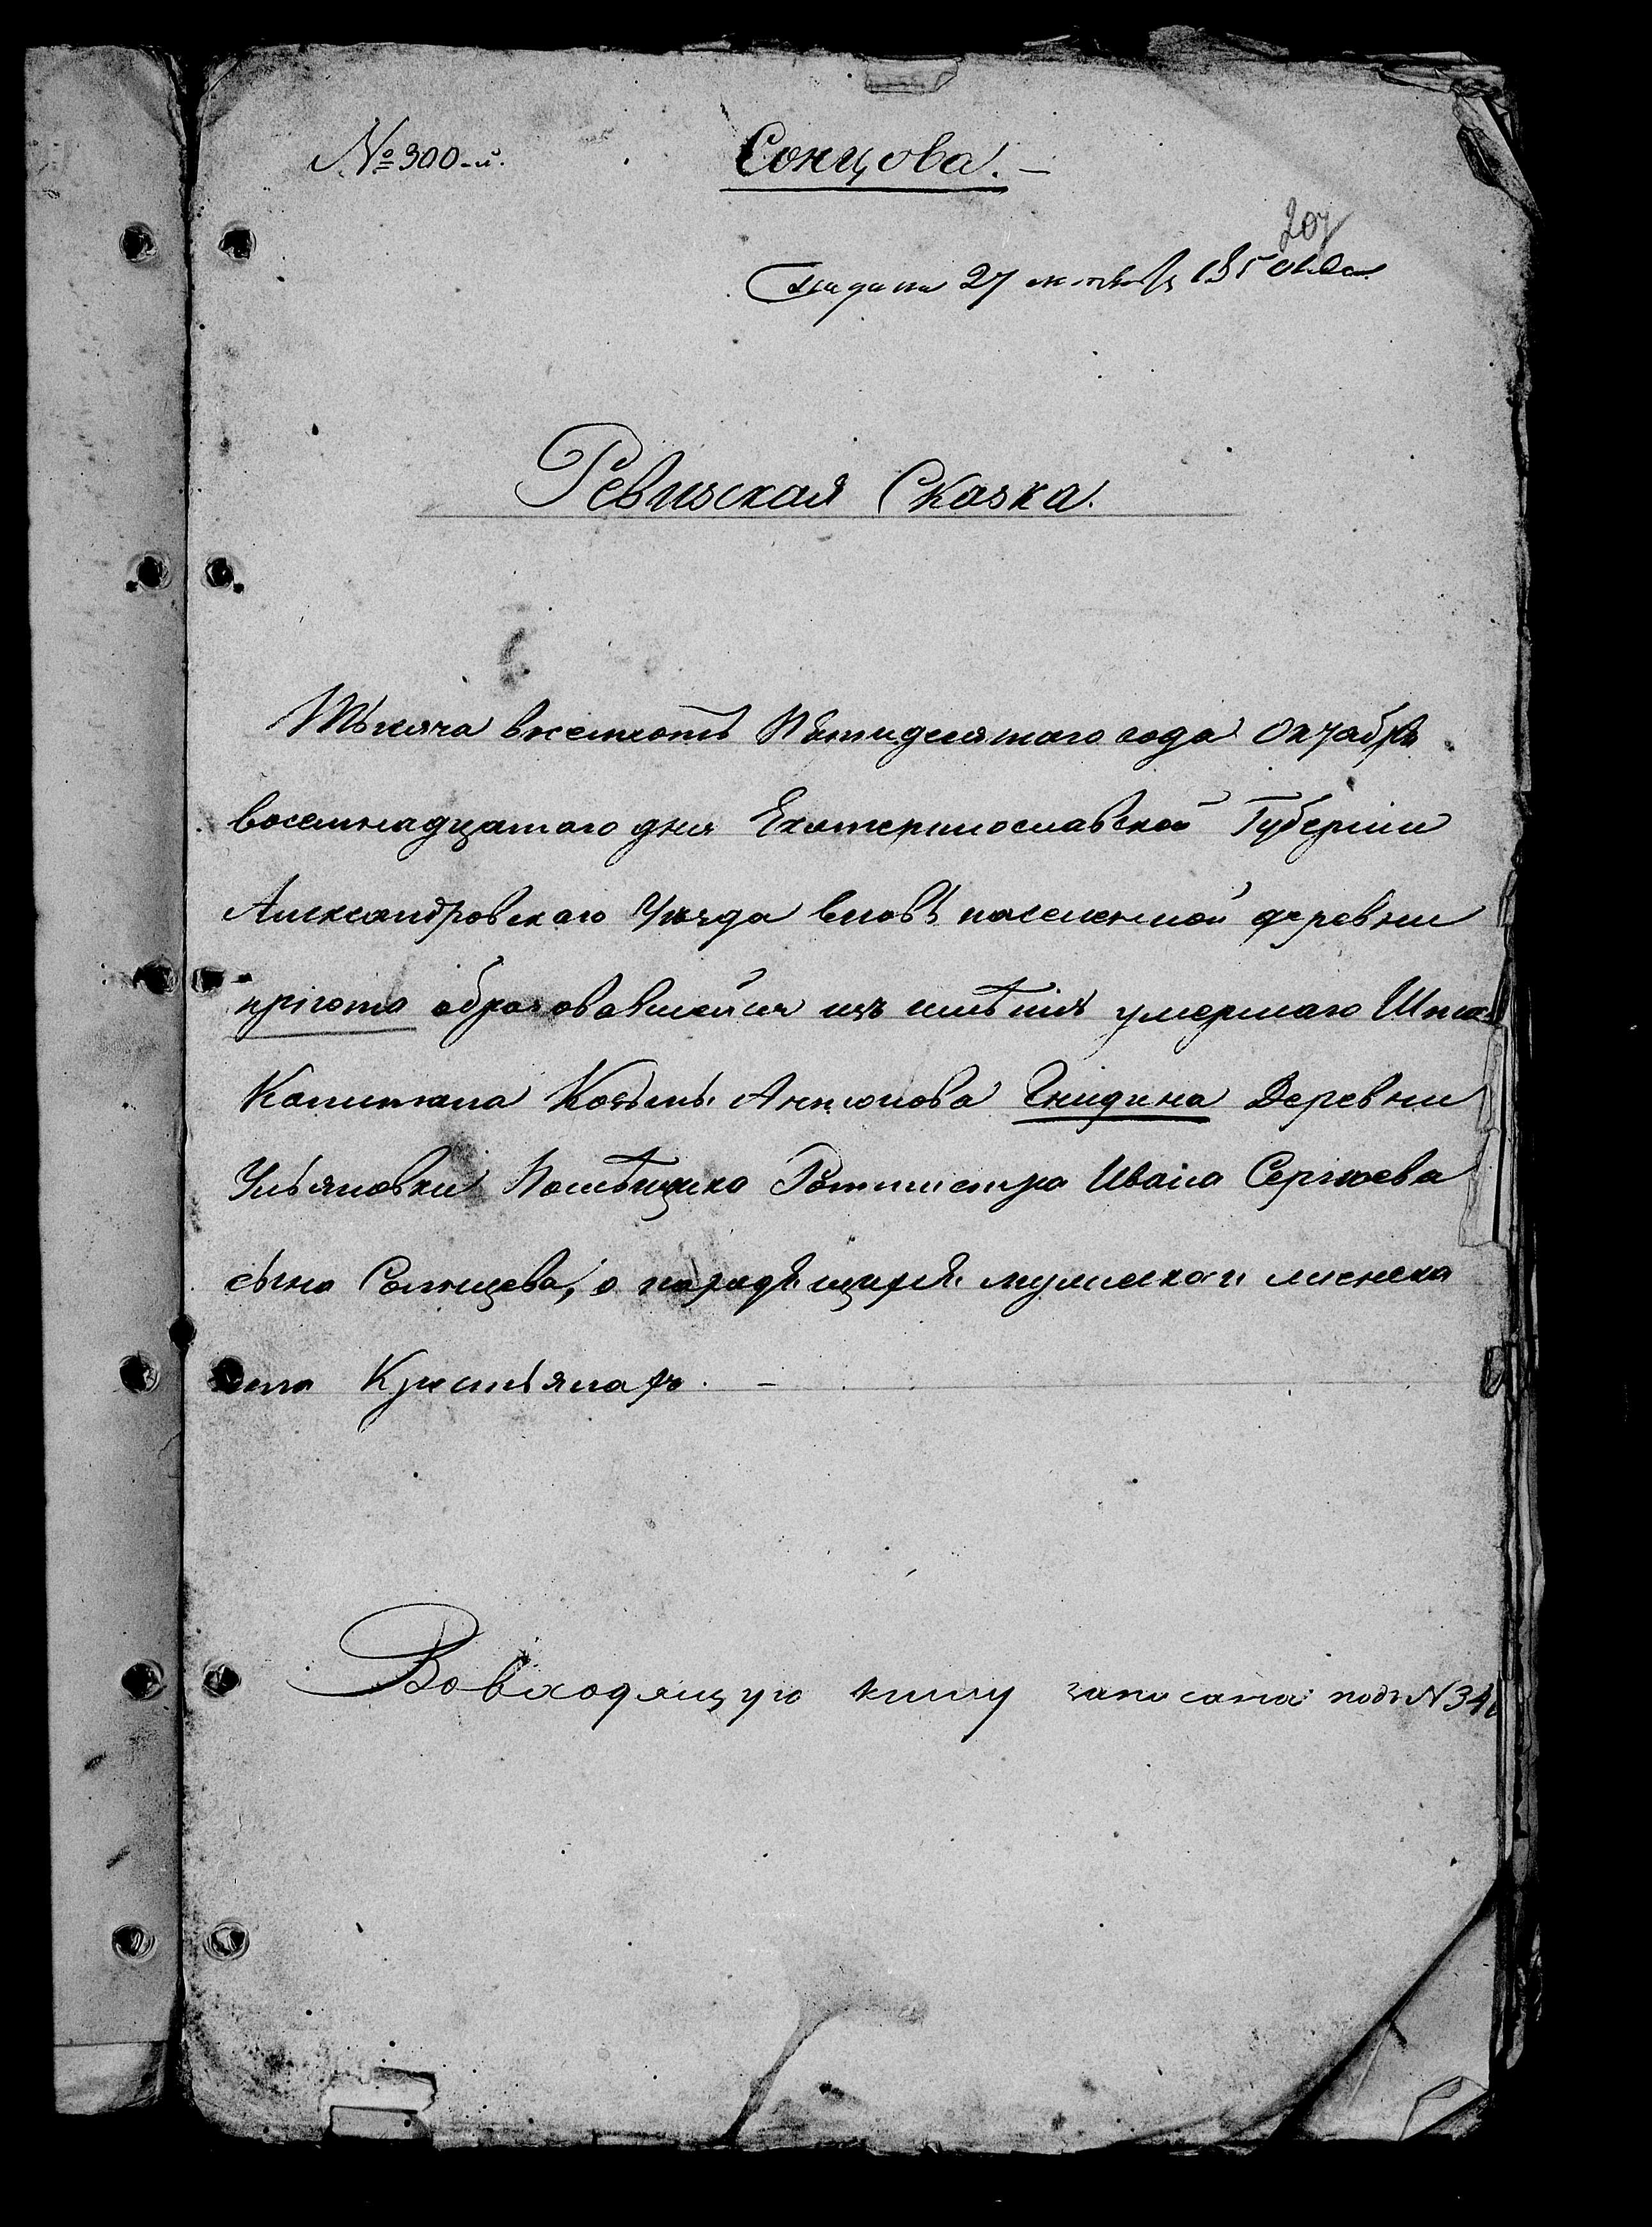 № 300-й.
Сонцова. —
207
Подана 27 октября 1850 года
Ревизская Сказка.
Тысяча восемсотъ Пятидесятаго года Октября
восемнадцатаго дня Екатеринославской Губерніи
Александровскаго Уѣзда вновь населенной деревни
пріюта образовавшейся изъ имѣнія умершаго Штаб
Капитана Козьмы Антонова Гнидина Деревни
Ульяновки Помѣщика Ротмистра Ивана Сергѣева
сына Солнцева, о мужеска и женска
пола Крестьянахъ. —
Во входящую книгу записана подъ N 341